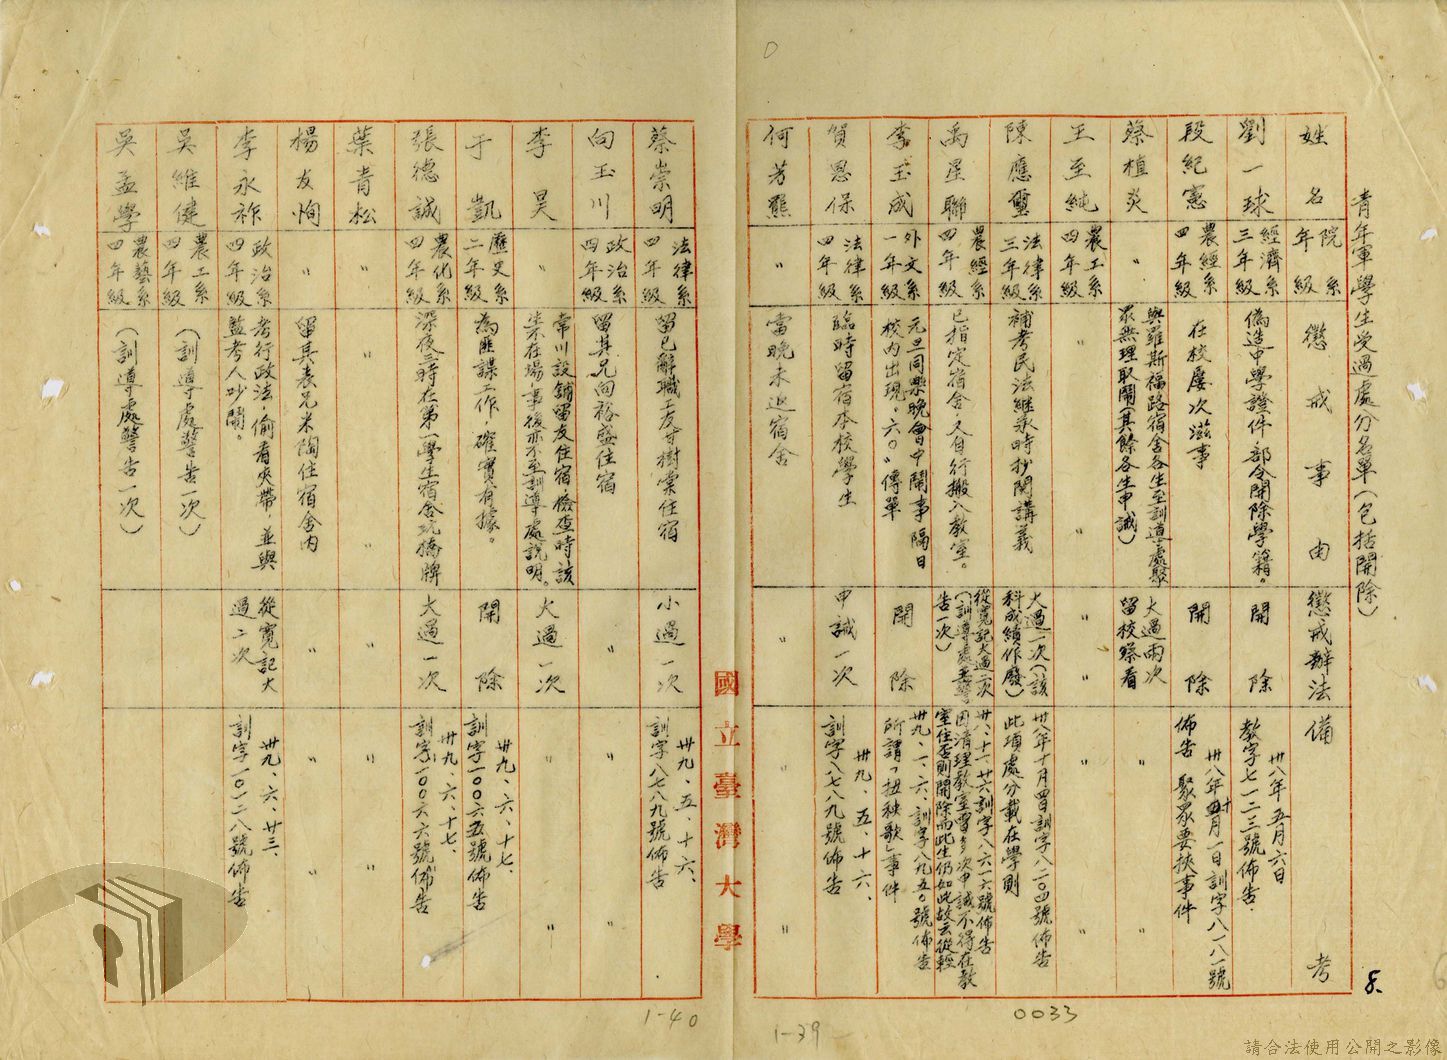 青年軍學生受過處分名單（包括開除）
姓名
院系年級
懲戒事由
懲戒辦法
備考
劉一球
經濟系三年級
偽造中學證件部令開除學籍。
開除
卅八年五月六日
教字七一二三號佈告.
段紀憲
農經系四年級
在校屢次滋事
開除
卅八年十月一日訓字八一八一號
佈告 聚眾要挾事件
蔡植炎
〃
與羅斯福路宿舍各生至訓導處聚
眾無理取鬧（其餘各生申誡）
大過兩次
留校察看
〃
王至純
農工系四年級
〃
〃
〃
陳應璽
法律系三年級
補考民法繼承時抄閱講義
大過一次（該
科成績作廢）
卅八年十月四日訓字八二〇四號佈告
此項處分載在學則
禹星聯
農經系四年級
已指定宿舍又自行搬入教室。
從寬記大過二次
（訓導處警
告一次）
卅八、十一、廿六訓字八六一六號佈告
因清理教室曾多次申誡不得在教
室住否則開除而此生仍如此故云從輕
李玉成
外文系一年級
元旦同樂晚會中鬧事隔日
校內出現〝六〇〞傳單
開除
卅九、一、六、訓字八九五〇號佈告
所謂「扭秧歌」事件
賀恩保
法律系四年級
臨時留宿本校學生
申誡一次
卅九、五、十六、
訓字八七八九號佈告
何芳羆
〃
當晚未返宿舍
〃
〃
國立臺灣大學
蔡崇明
法律系四年級
留已辭職工友甘樹棠住宿
小過一次
卅九、五、十六、
訓字八七八九號佈告
向玉川
政治系四年級
留其兄向裕盛住宿
〃
〃
李昊
〃
常川設舖留友住宿檢查時該
生不在場，事後亦不至訓導處說明。
大過一次
于凱
歷史系二年級
為匪諜工作，確實有據。
開除
卅九、六、十七、
訓字一〇〇六五號佈告
張德誠
農化系四年級
深夜三時在第一學生宿舍玩橋牌
大過一次
卅九、六、十七、
訓字一〇〇六六號佈告
葉青松
〃
〃
〃
〃
楊友恂
〃
留其表兄米陶住宿舍內
〃
〃
李永祚
政治系四年級
考行政法，偷看夾帶，並與
監考人吵鬧。
從寬記大
過二次
卅九、六、廿三、
訓字一〇一二八號佈告
吳維健
農工系四年級
（訓導處警告一次）
吳孟學
農藝系四年級
（訓導處警告一次）
8.
0033
1-39
1-40
請合法使用公開之影像